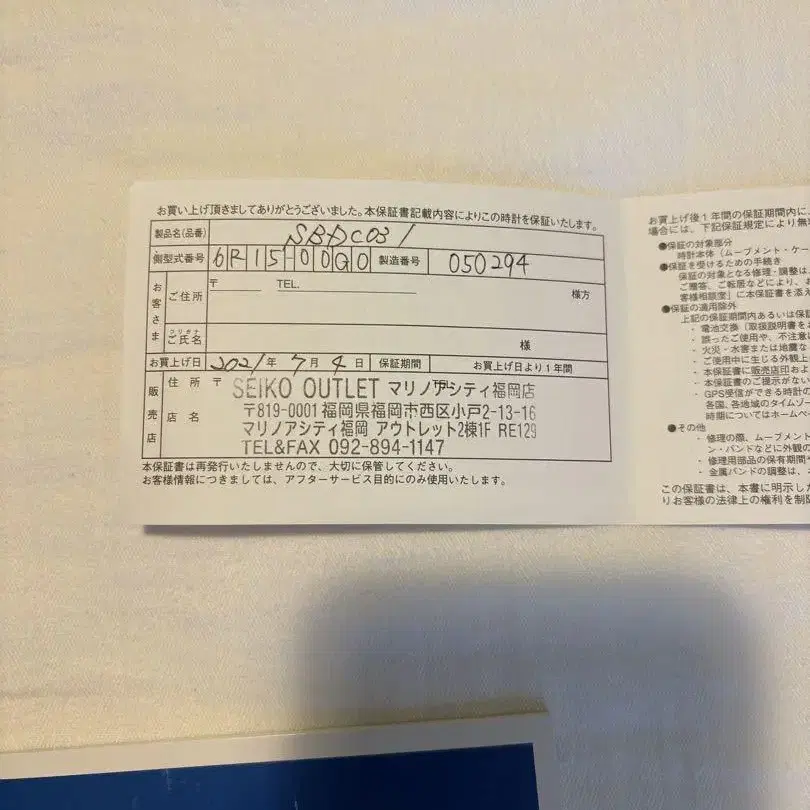 お買い上げ頂きましてありがとうございました。本保証書記載内容によりこの時計を保証いたします。
製品名(品番) SBDC031
側型式番号 6R15-00G0 製造番号 050294
お客さま
ご住所 〒 TEL. 様方
フリガナ
ご氏名 様
お買上げ日 2021年 7月 4日 保証期間 お買上げ日より1年間
販売店
住所 〒 SEIKO OUTLET マリノアシティ福岡店
〒819-0001福岡県福岡市西区小戸2-13-16
店名 マリノアシティ福岡 アウトレット2棟1F RE129
TEL&FAX 092-894-1147
本保証書は再発行いたしませんので、大切に保管してください。
お客様情報につきましては、アフターサービス目的にのみ使用いたします。
お買上げ後1年間の保証期間内に、
場合には、下記保証規定により無
●保証の対象部分
時計本体（ムーブメント・ケー
●保証を受けるための手続き
保証の対象となる修理・調整は、
ご贈答、ご転居などにより、お
客様相談室」に本保証書を添え
●保証の適用除外
上記の保証期間内あるいは保証
・電池交換（取扱説明書をお
・誤ったご使用や、不注意に
・火災・水害または地震な
・ご使用中に生じる外観上
・本保証書に販売店印およ
・本保証書のご提示がない
・GPS受信ができる時計の
各国、各地域のタイムゾー
時期についてはホームペ
●その他
・修理の際、ムーブメント
ン・バンドなどに外観の
・修理用部品の保有期間
・金属バンドの調整は、
この保証書は、本書に明示した
りお客様の法律上の権利を制